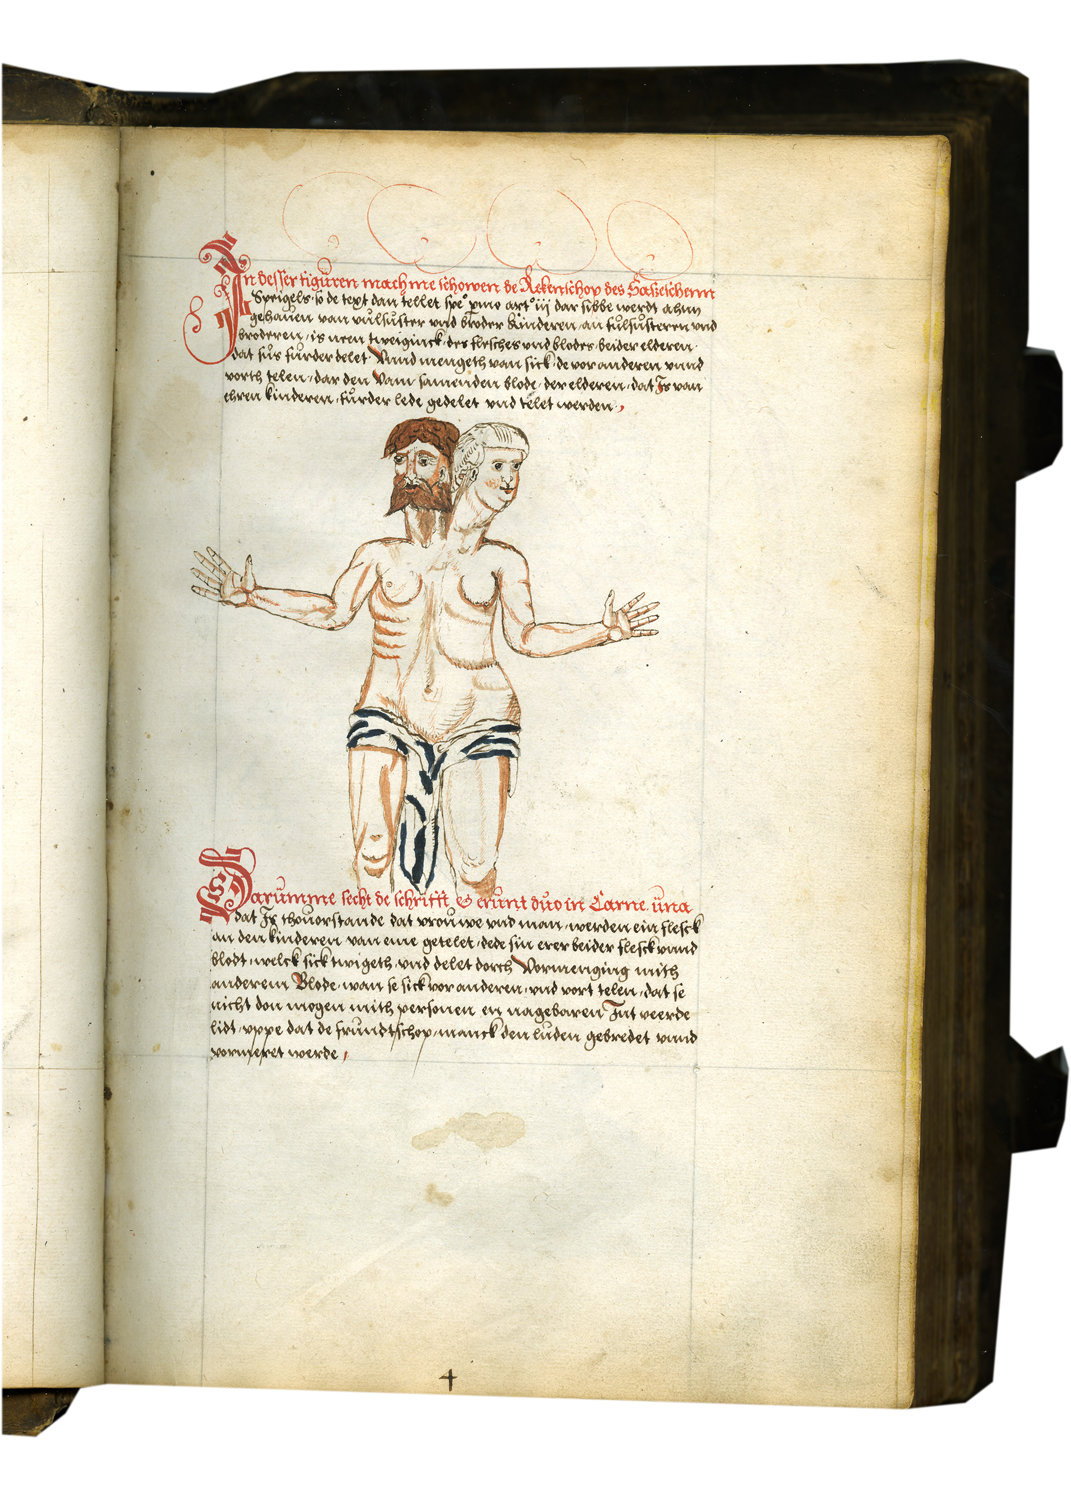 In desser figuren mach me schowen de Rekenschop des Sasseschenn
Speigels· so de text dan tellet spe° pmo art° iij dar sibbe werdt ahnn
gehauen van vulsuster vnd broder kinderen· an fulsusteren vnd
broderen· is nem tweiginck· des flesches vnd blodes beider elderen·
dat sus furder delet Vnnd mengeth van sick· de vor anderen vnnd
vorth telen· dar den Vam samenden blode· der elderen· dat Is van
ehren kinderen· furder lede gedelet vnd telet werden·
Darumme secht de schrifft & erunt duo in Carne una
dat Is thouorstande dat vrouwe vnd man· werden ein flesck
an den kinderen van eme getelet· dede sin erer beider flesck vnnd
blodt· welck sick twigeth· vnd delet dorch Vormenging mith
anderem Blode· wan se sick vor anderen· vnd vort telen· dat se
nicht don mogen mith personen en nagebaren Int veerde
lidt· vppe dat de frundtschop· manck den luden gebredet vnnd
vormeret werde
4